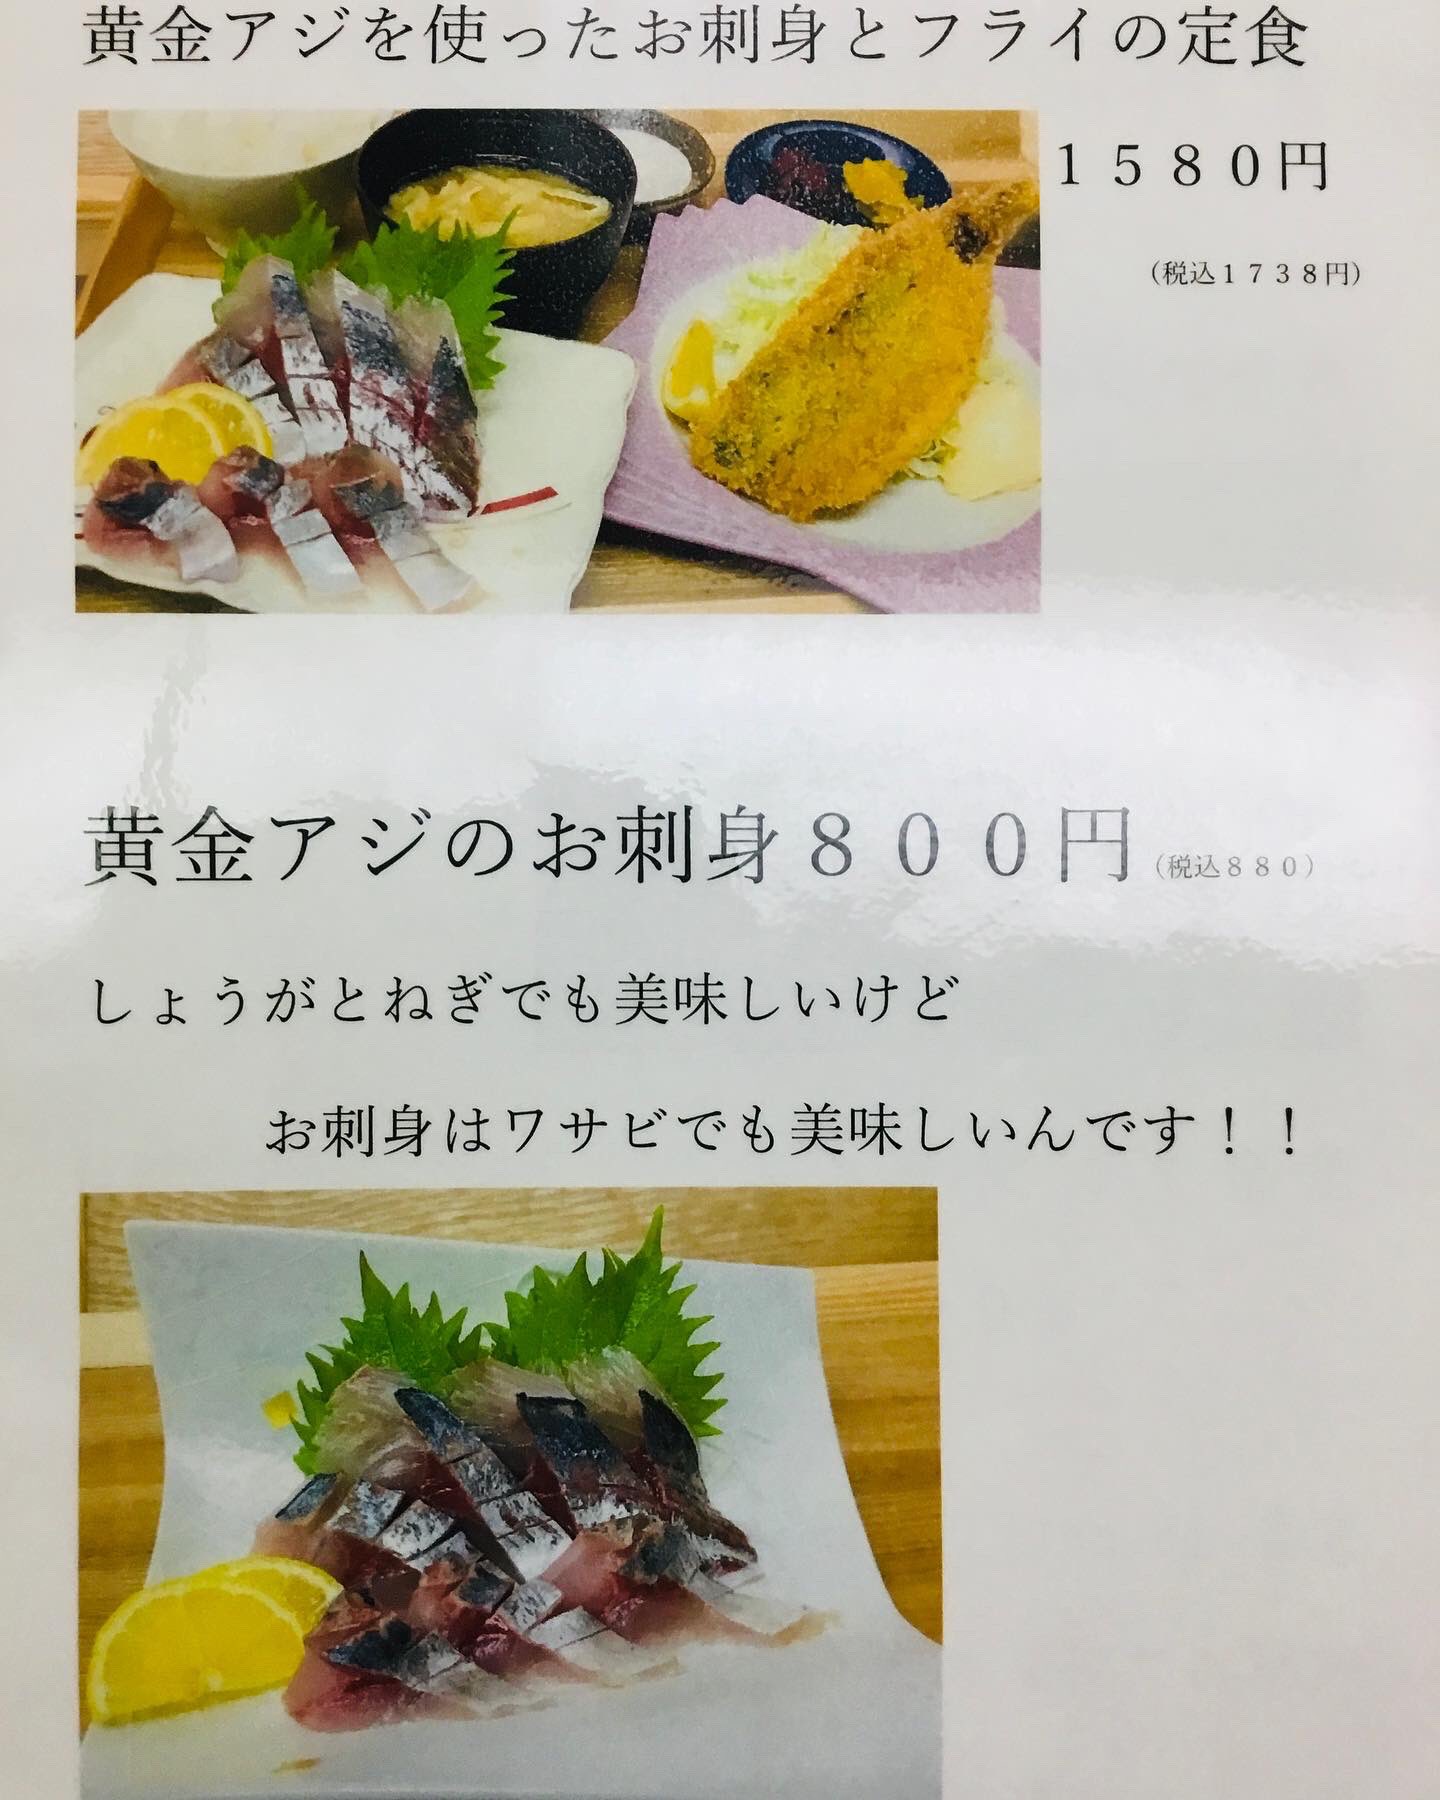 黄金アジを使ったお刺身とフライの定食
１５８０円
（税込１７３８円）
黄金アジのお刺身８００円（税込８８０）
しょうがとねぎでも美味しいけど
お刺身はワサビでも美味しいんです！！